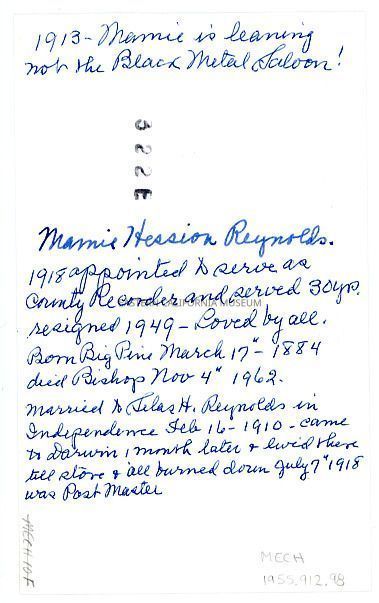 1913 - Mamie is leaning
not the Black Metal Saloon!
322E
Mamie Hession Reynolds.
1918 appointed to serve as
County Recorder and served 30 yrs.
EASTERN CALIFORNIA MUSEUM
resigned 1949 - Loved by all.
Born Big Pine March 17" - 1884
died Bishop Nov 4" 1962.
married to Silas H. Reynolds in
Independence Feb 16 - 1910 - came
to Darwin 1 month later & lived there
till store & all burned down July 7" 1918
was Post Master
MECH
1955.912.98